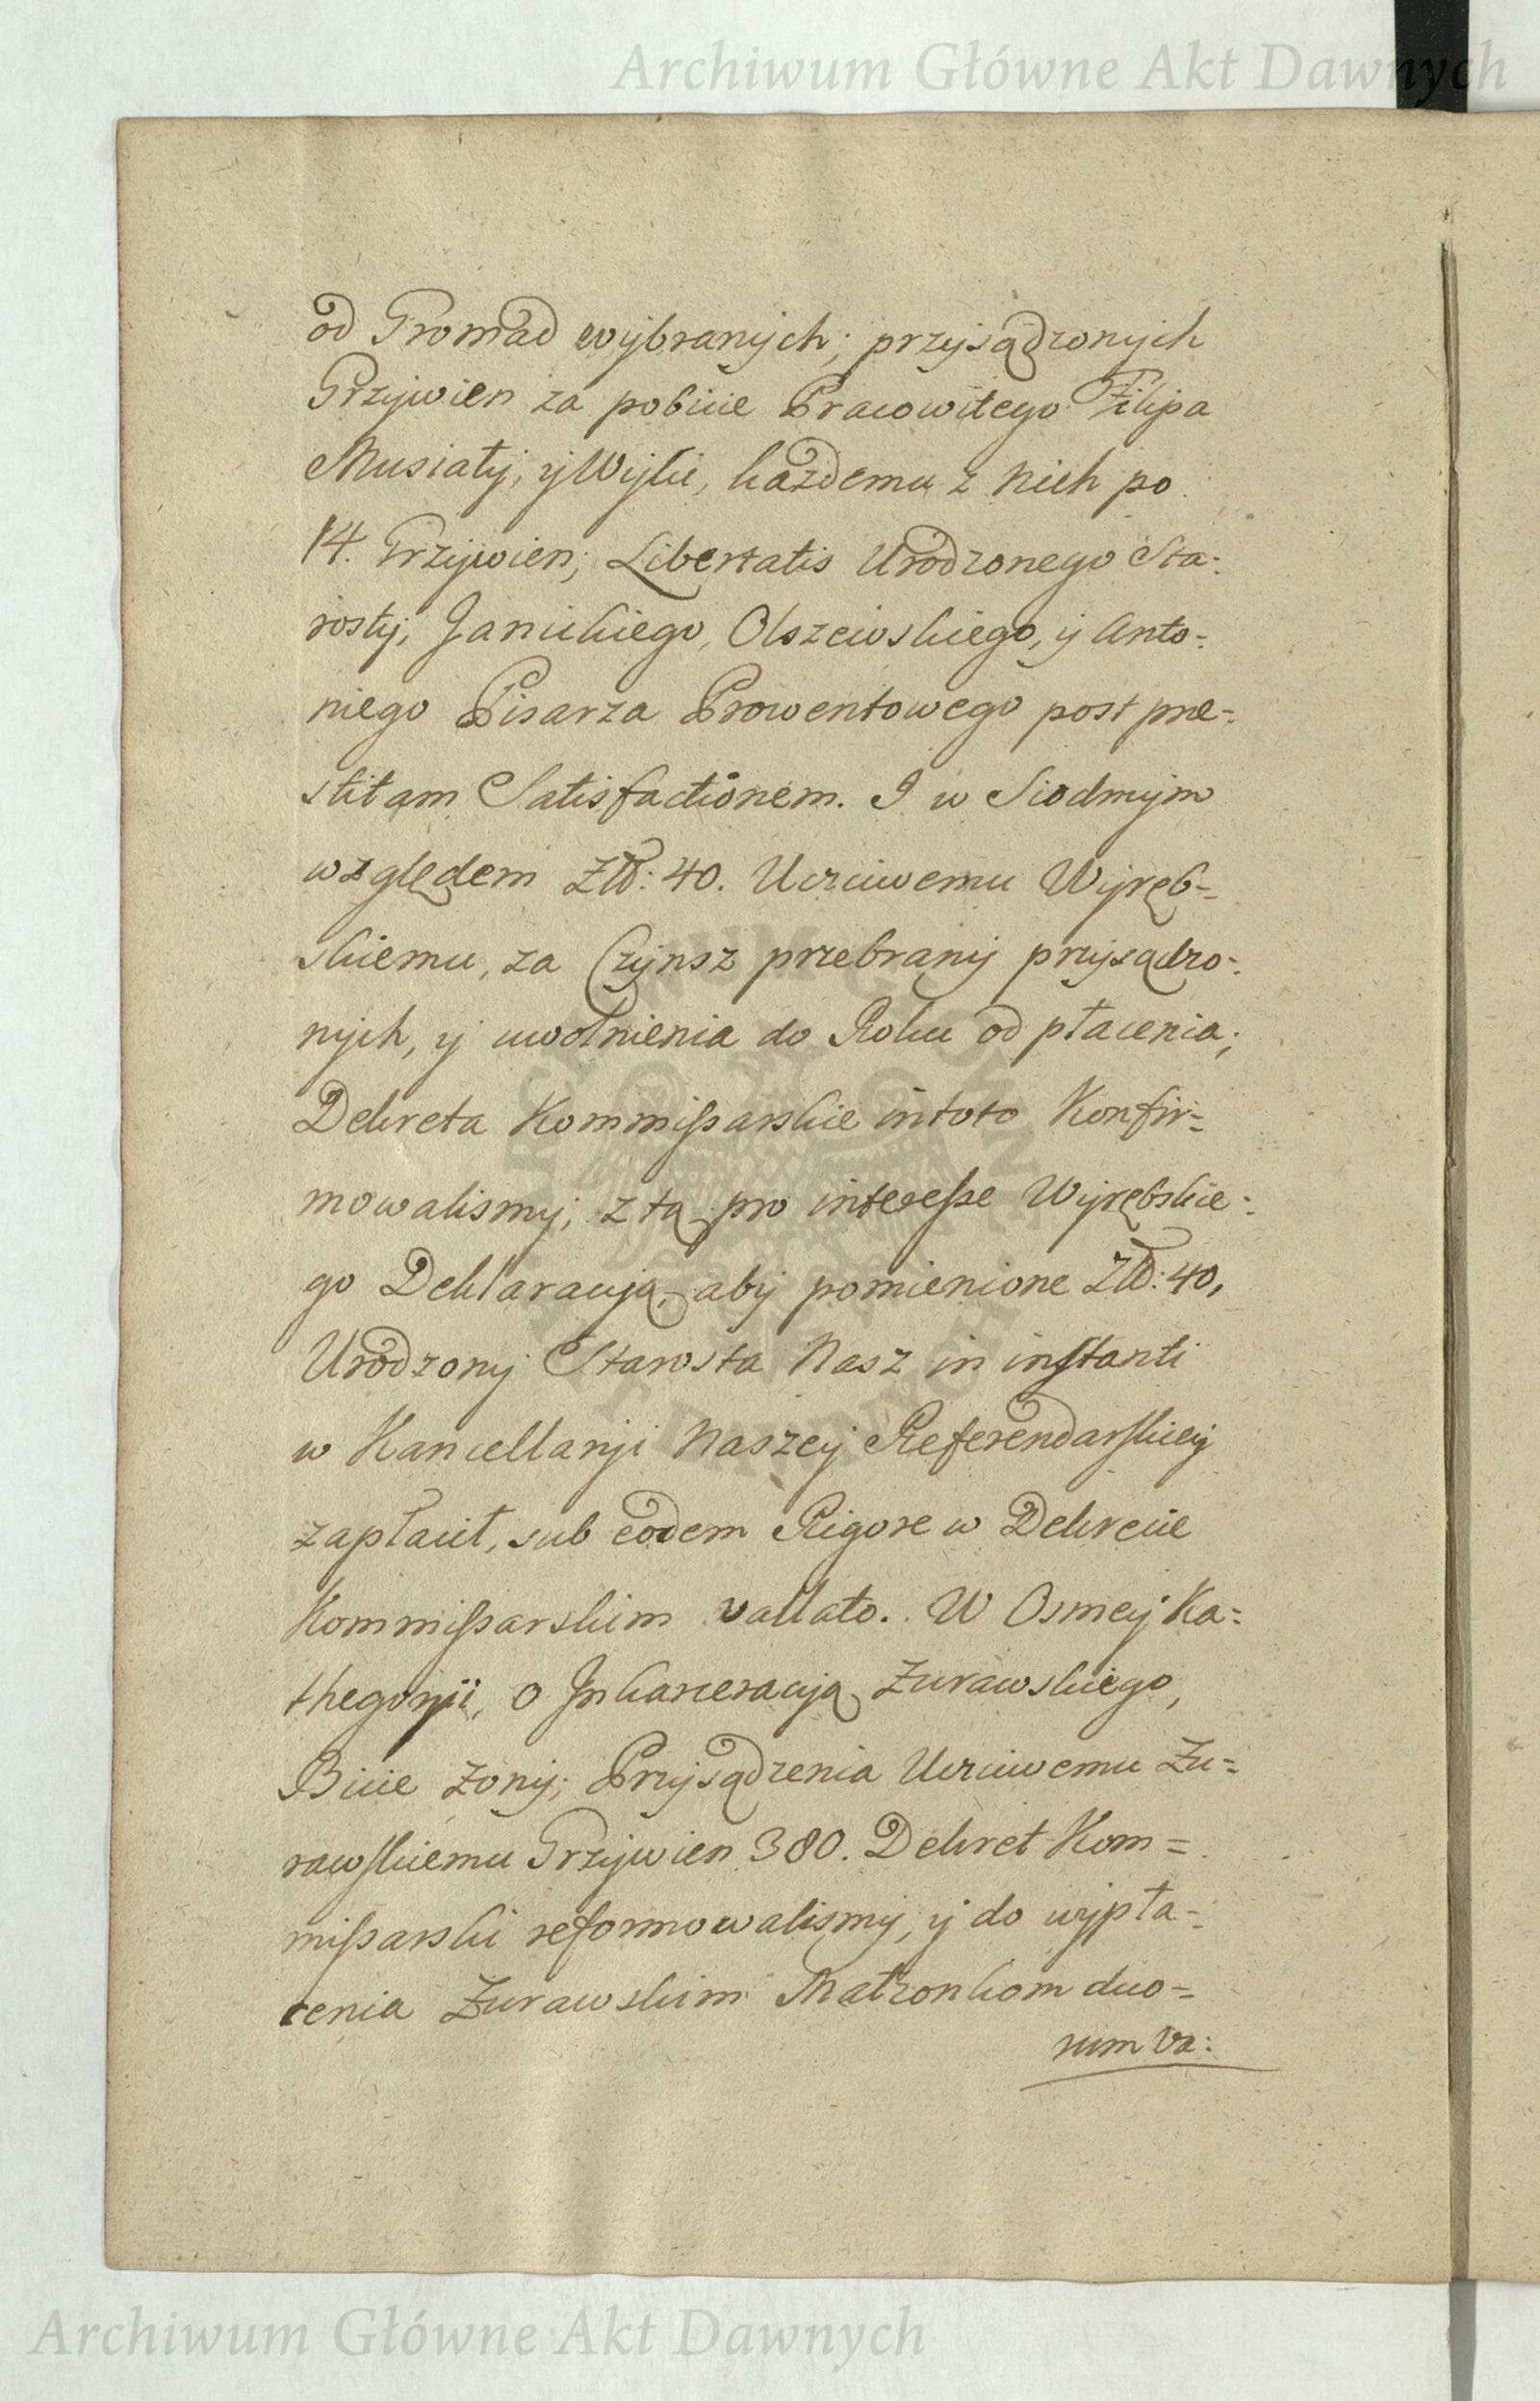 Archiwum Główne Akt Dawnych
od Gromad wybranych; przysądzonych
Grzywien za pobicie Pracowitego Filipa
Musiały, y Wylie, każdemu z nich po
14. Grzywien; Libertatis Urodzonego Sta-
rosty, Janickiego, Olszewskiego, y Anto-
niego Pisarza Prowentowego post pre-
stitam Satisfactionem. I w Siodmym
względem Zł: 40. Uczciwemu Wyręb-
skiemu, za Czynsz przebrany przysądzo-
nych, y uwolnienia do Roku od płacenia;
Dekreta Kommissarskie in toto Konfir-
mowalismy; z tą pro interesse Wyrębskie-
go Deklaracyą, aby pomienione Zł: 40,
Urodzony Starosta Nasz in instanti
w Kancellaryi Naszey Referendarskiey
zapłacił, sub eodem Rigore w Dekrecie
Kommissarskim vallato. W Osmey Ka-
thegoryi, o Inkarceracyą Zurawskiego,
Bicie Zony; Przysądzenia Uczciwemu Zu-
rawskiemu Grzywien 380. Dekret Kom-
missarski reformowalismy, y do wypła-
cenia Zurawskim Małżonkom duo-
rum Va:
Archiwum Główne Akt Dawnych